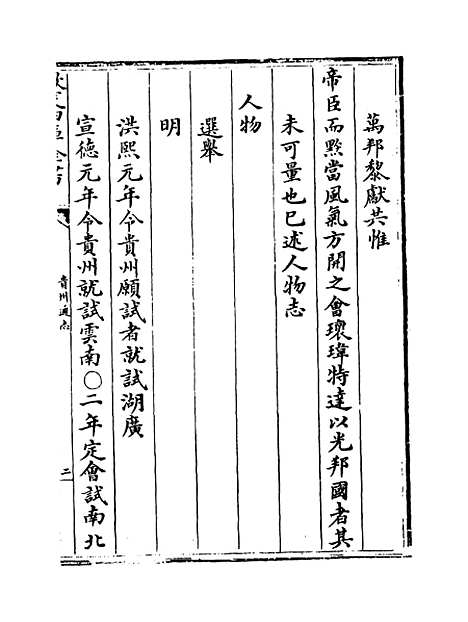 萬邦黎獻共惟
帝臣而黔當風氣方開之會瓌瑋特達以光邦國者其
未可量也已述人物志
人物
選舉
明
洪熙元年令貴州願試者就試湖廣
宣德元年令貴州就試雲南〇二年定會試南北
欽定四庫全書
貴州通志
二